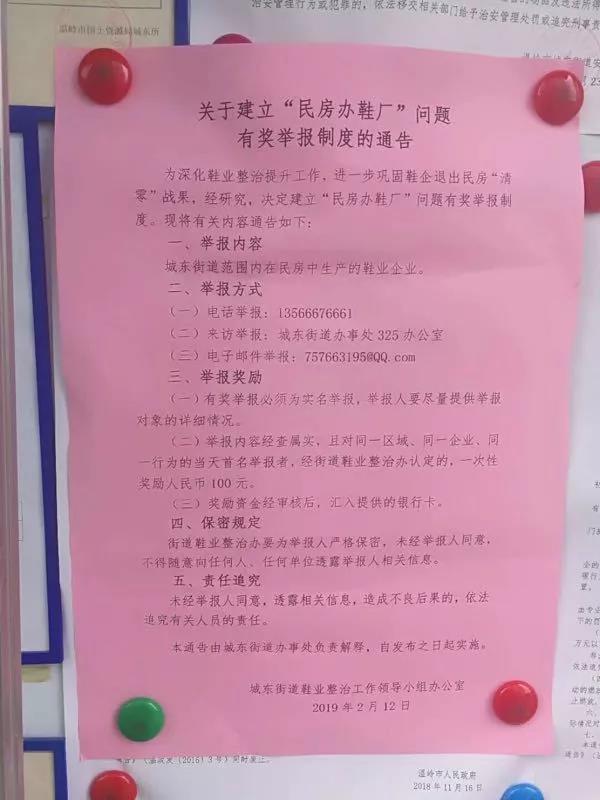 温岭市国土资源局城东所
治安管理行为或犯罪的，依法移交相关部门给予治安管理处罚或追究刑事责
关于建立“民房办鞋厂”问题
有奖举报制度的通告
为深化鞋业整治提升工作，进一步巩固鞋企退出民房“清
零”战果，经研究，决定建立“民房办鞋厂”问题有奖举报制
度。现将有关内容通告如下：
一、举报内容
城东街道范围内在民房中生产的鞋业企业。
二、举报方式
（一）电话举报：13566676661
（二）来访举报：城东街道办事处325办公室
（三）电子邮件举报：757663195@QQ.com
三、举报奖励
（一）有奖举报必须为实名举报，举报人要尽量提供举报
对象的详细情况。
（二）举报内容经查属实，且对同一区域、同一企业、同
一行为的当天首名举报者，经街道鞋业整治办认定的，一次性
奖励人民币100元。
（三）奖励资金经审核后，汇入提供的银行卡。
四、保密规定
街道鞋业整治办要为举报人严格保密，未经举报人同意，
不得随意向任何人、任何单位透露举报人相关信息。
五、责任追究
未经举报人同意，透露相关信息，造成不良后果的，依法
追究有关人员的责任。
本通告由城东街道办事处负责解释，自发布之日起实施。
城东街道鞋业整治工作领导小组办公室
2019年2月12日
温岭市人民政府
2018年11月16日